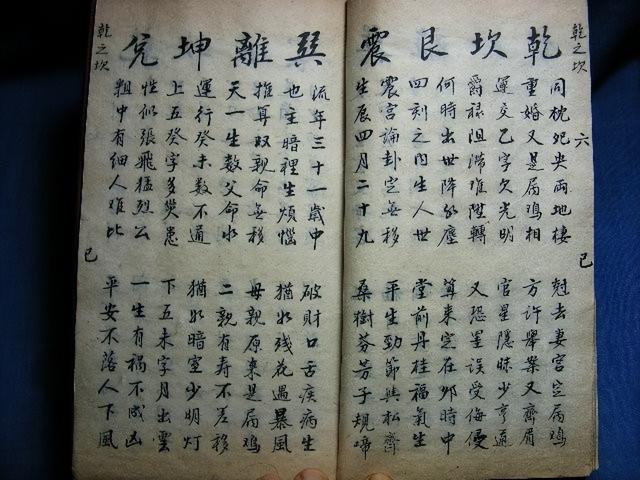 乾之坎
六
巳
乾坎艮震
同枕夗央兩地棲
尅去妻宮定局鸡
重婚又是局鸡相
方許舉案又齊眉
運交乙字欠光明
官星隱昧少亨通
爵祿阻滞难陞轉
又恐星誤受侮慢
何時出世降紅塵
算来定在卯時中
四刻之内生人世
堂前丹桂福氣生
震宮論卦定無移
平生勁節與松齊
生辰四月二十九
桑樹芬芳子規啼
巽離坤兌
流年三十一歲中
破財口舌疾病生
也主暗裡生煩惱
猶如殘花遇暴風
推算双親命無移
母親原来是局鸡
天一生数父命水
二親有壽不差移
運行癸未数不通
猶如暗室少明灯
上五癸字多災患
下五未字月出雲
性似張飛猛烈公
一生有禍不成凶
粗中有细人难比
平安不落人下風
乾之坎
巳